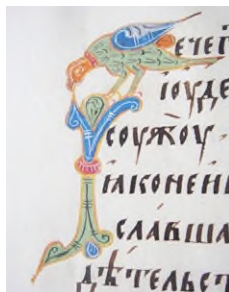 ечег
іоуде
соужоу
ꙗконені
славша
дѣтельст